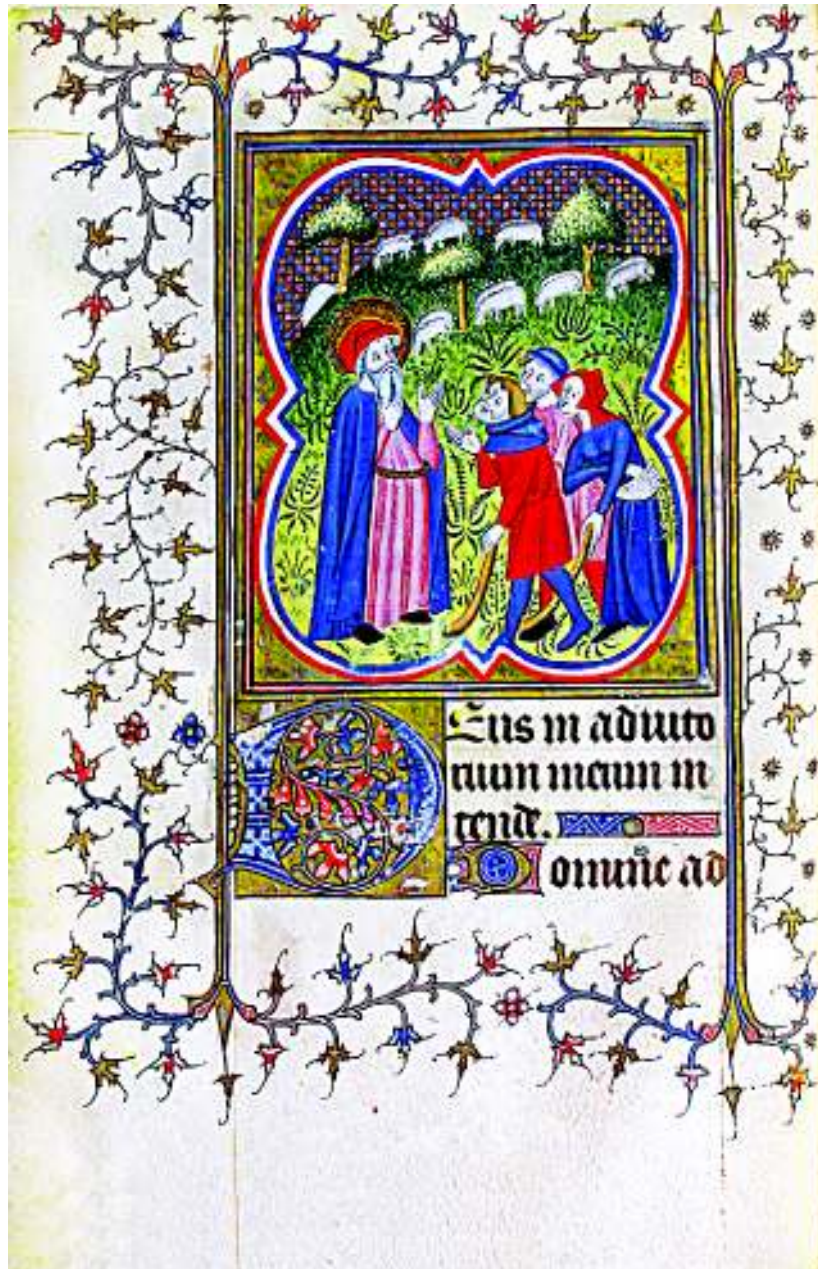 Deus in adiuto
rium meum in
tende.
Domine ad